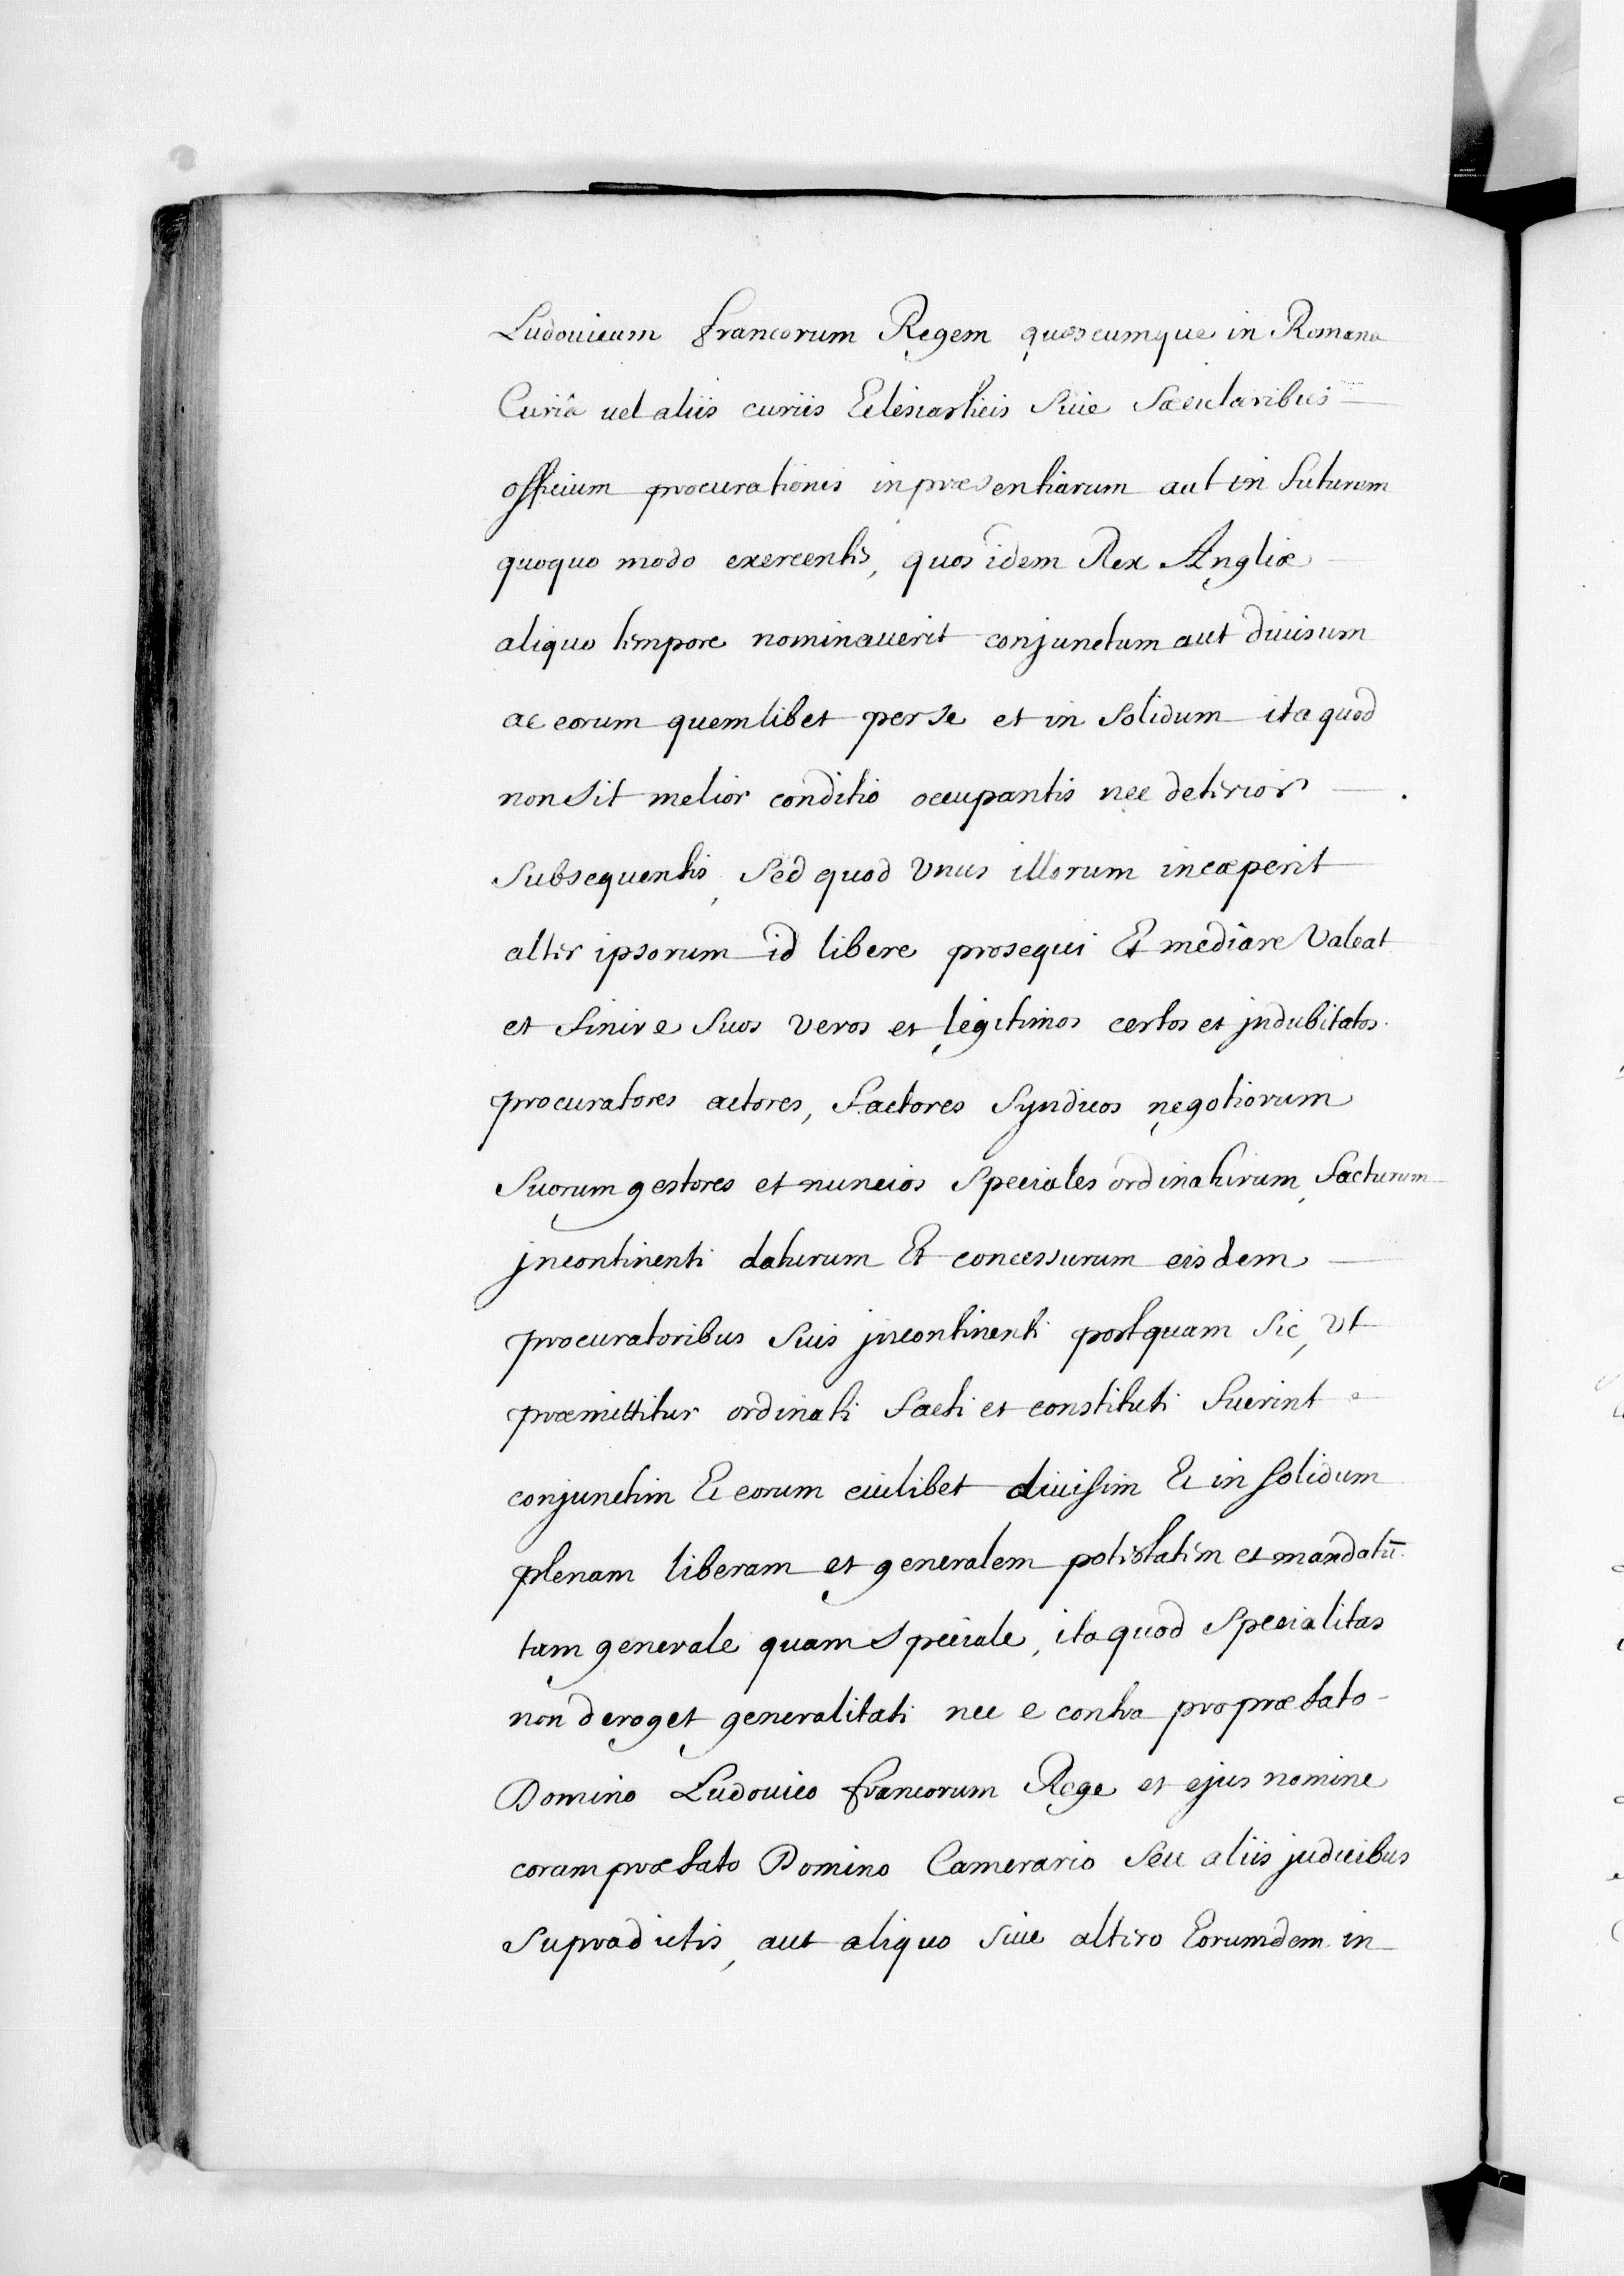 Ludouicum francorum Regem quoscumque in Romana
Curiâ uel aliis curiis Eclesiasticis siue sæcularibus
officium procurationis in præsentiarum aut in futurum
quoquo modo exercentis, quos idem Rex Angliæ
aliquo tempore nominauerit conjunctum aut diuisum
ac eorum quemlibet per se et in solidum ita quod
non sit melior conditio occupantis nec deterior
subsequentis, sed quod vnus illorum incæperit
alter ipsorum id libere prosequi Et mediare valeat
et finire suos veros et legitimos certos et jndubitatos
procuratores actores, factores syndicos negotiorum
suorum gestores et nuncios speciales ordinaturum, facturum
jncontinenti daturum Et concessurum eisdem
procuratoribus suis jncontinenti postquam sic, vt
præmittitur ordinati facti et constituti fuerint
conjunctim Et eorum cuilibet diuisim Et in solidum
plenam liberam et generalem potestatem et mandatū
tam generale quam speciale, ita quod specialitas
non deroget generalitati nec e contra pro præfato
Domino Ludouico francorum Rege et ejus nomine
coram præfato Domino Camerario seu aliis judicibus
supradictis, aut aliquo siue altero Eorumdem in